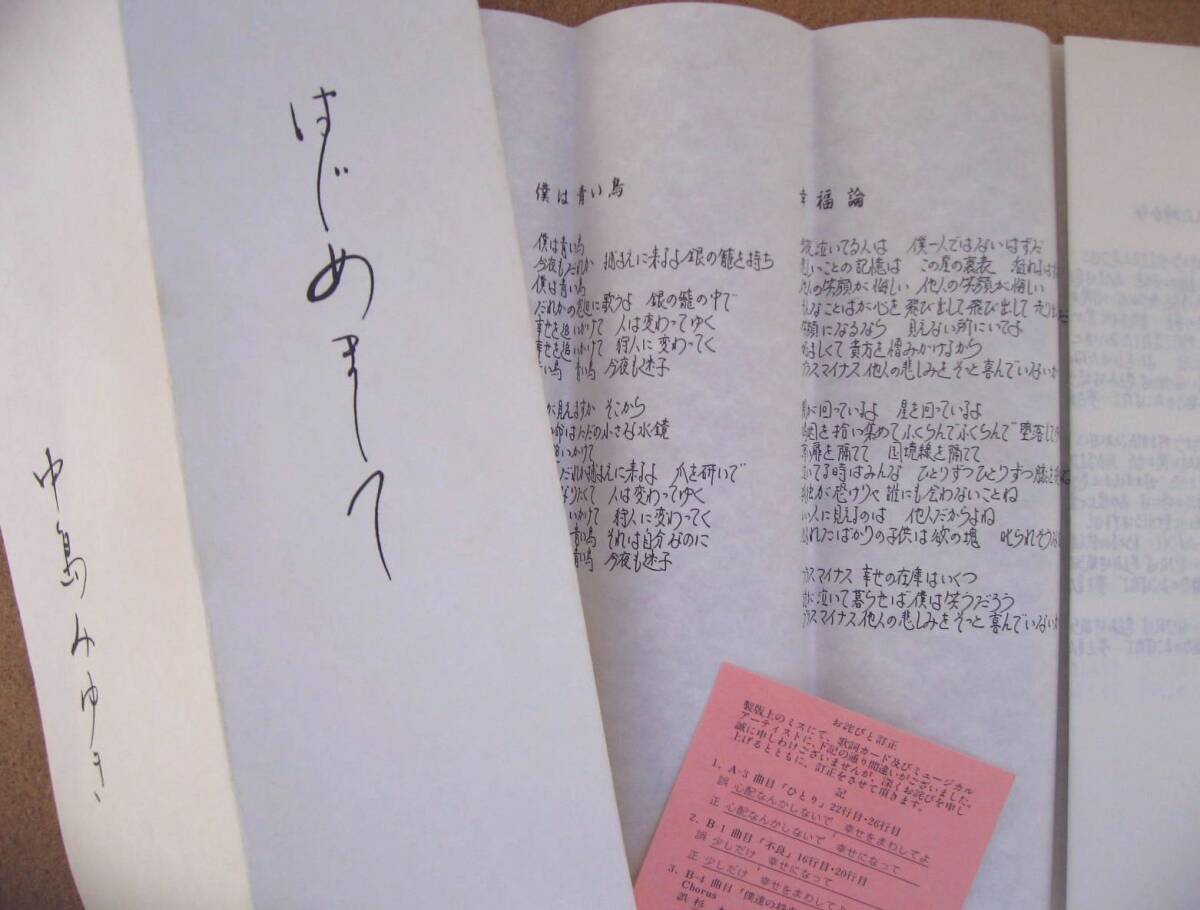 はじめまして
中島みゆき
僕は青い鳥
僕は青い鳥
今夜もだれか 捕まえに来るよ 銀の籠を持ち
僕は青い鳥
だれかの窓辺に歌うよ 銀の籠の中で
幸せを追いかけて 人は変わってゆく
幸せを追いかけて 狩人に変わってく
青い鳥 青い鳥 今夜も迷子
が見えますか そこから
命はただの小さな水鏡
いかけて
だれか捕まえに来るよ 爪を研いで
なりたくて 人は変わってゆく
いかけて 狩人に変わってく
青い鳥 それは自分なのに
青い鳥 今夜も迷子
幸福論
泣いてる人は 僕一人ではないはずだ
いことの記憶は この星の裏表 溢れるは
の笑顔が悔しい 他人の笑顔が悔しい
なことばが心を飛び出して飛び出して走り
顔になるなら 見えない所にいてよ
しくて貴方を憎みかけるから
プラスマイナス他人の悲しみをそっと喜んでいないか
が回っているよ 星を回っているよ
を拾い集めてふくらんでふくらんで堕落し
扉を隔てて 国境線を隔てて
いてる時はみんな ひとりずつひとりずつ膝を
が恐けりゃ誰にも会わないことね
い人に見えるのは 他人だからよね
れたばかりの子供は欲の塊 叱られそうな
プラスマイナス 幸せの在庫はいくつ
に泣いて暮らせば僕は笑うだろう
プラスマイナス他人の悲しみをそっと喜んでいないか
お詫びと訂正
製版上のミスにて、歌詞カード及びミュージカル
アーティストに、下記の通り間違いがございました。
誠に申しわけございませんが、深くお詫びを申し
上げるとともに、訂正をさせて頂きます。
記
1. A-3 曲目「ひとり」22行目・26行目
誤 心配なんかしないで 幸せをまわしてよ
正 心配なんかしないで 幸せになって
2. B-1 曲目「不良」16行目・20行目
誤 少しだけ 幸せになって
正 少しだけ 幸せをまわしてよ
3. B-4 曲目「僕達の将来
Chorus
誤 杉